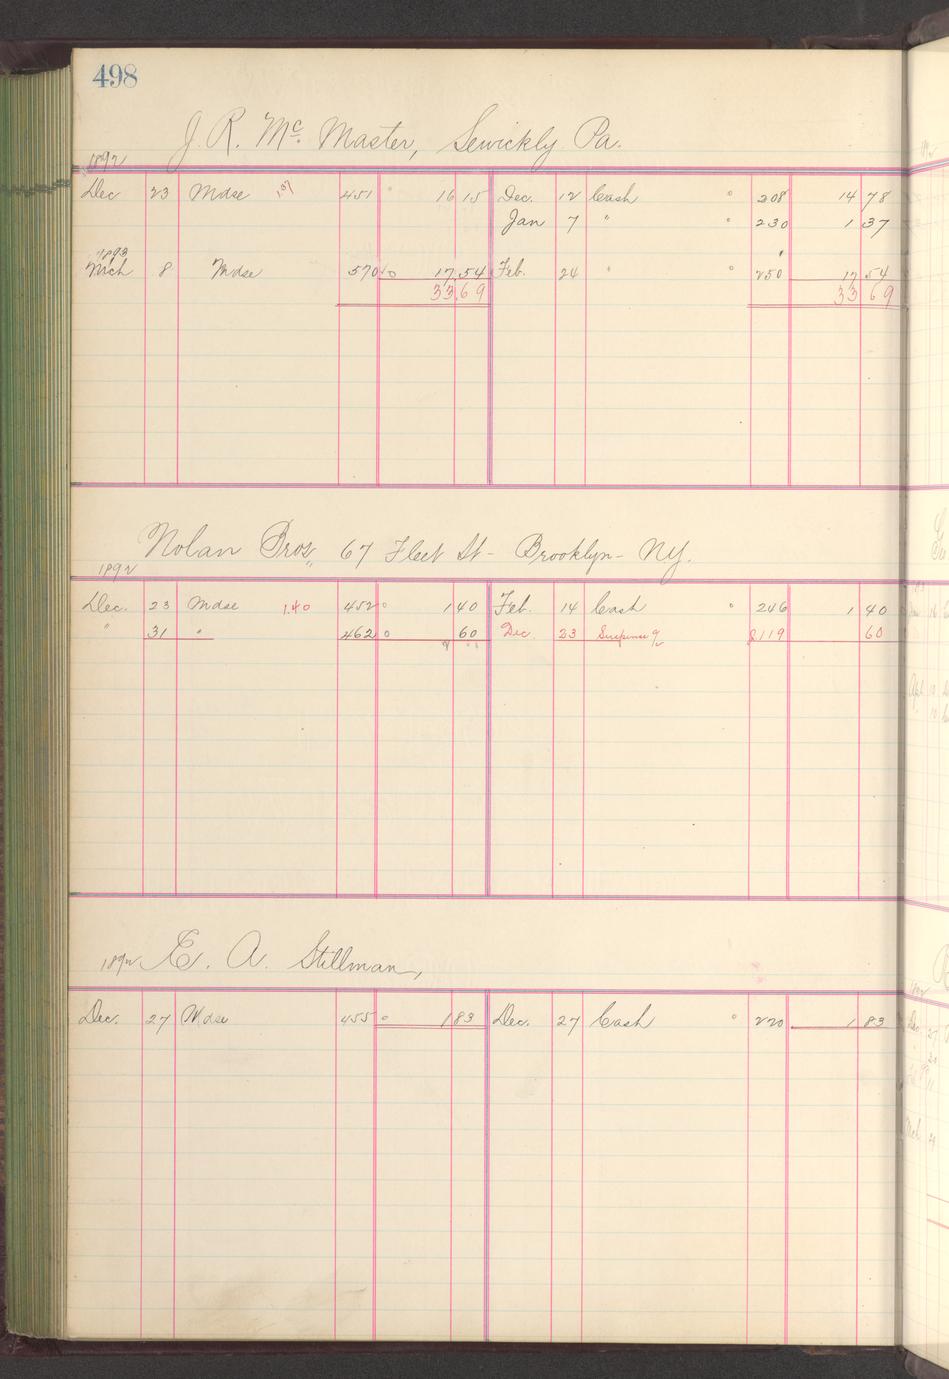 498
J. R. Mc. Master, Sewickly Pa.
1892
Dec 23 Mdse 1.37 451 16 15 Dec. 12 Cash 208 14 78
Jan 7 " 230 1 37
1893
Mch 8 Mdse 570 17.54 Feb. 24 " 250 17 54
33.69 33 69
Nolan Bros, 67 Fleet St - Brooklyn - NY.
1892
Dec. 23 Mdse 1.40 452 1 40 Feb. 14 Cash 246 1 40
" 31 " 462 60 Dec. 23 Suspense 119 60
1892 E. A. Stillman,
Dec. 27 Mdse 455 1 83 Dec. 27 Cash 220 1 83